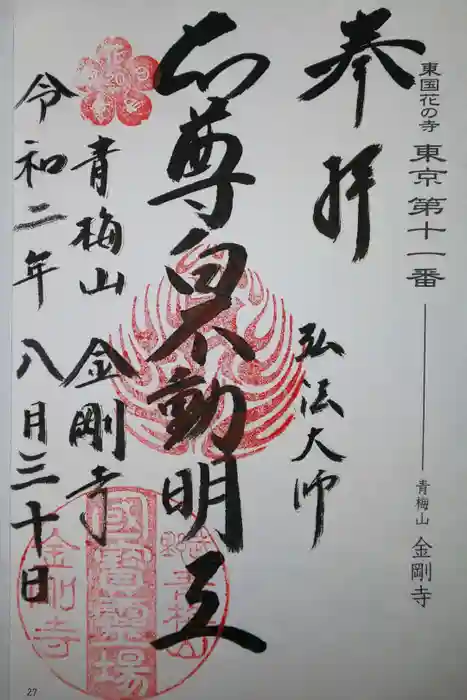 東国花の寺 東京第十一番 青梅山 金剛寺
奉拝
弘法大師
本尊白不動明王
青梅山 金剛寺
令和二年 八月三十日
青梅山
金剛寺
27